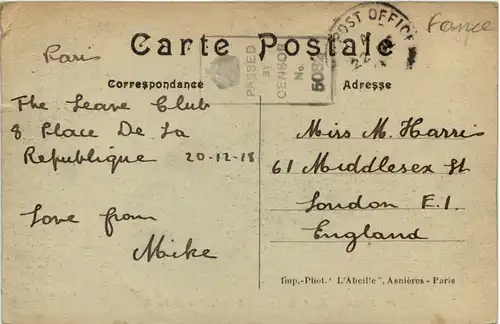 France
Paris
POST OFFICE
Carte Postale
PASSED
BY
CENSOR
No.
Correspondance
Adresse
The Leave Club
8 Place De La
Republique 20-12-18
Love from
Mike
Miss M. Harris
61 Middlesex St
London E.1.
England
Imp.-Phot. "L'Abeille", Asnières - Paris